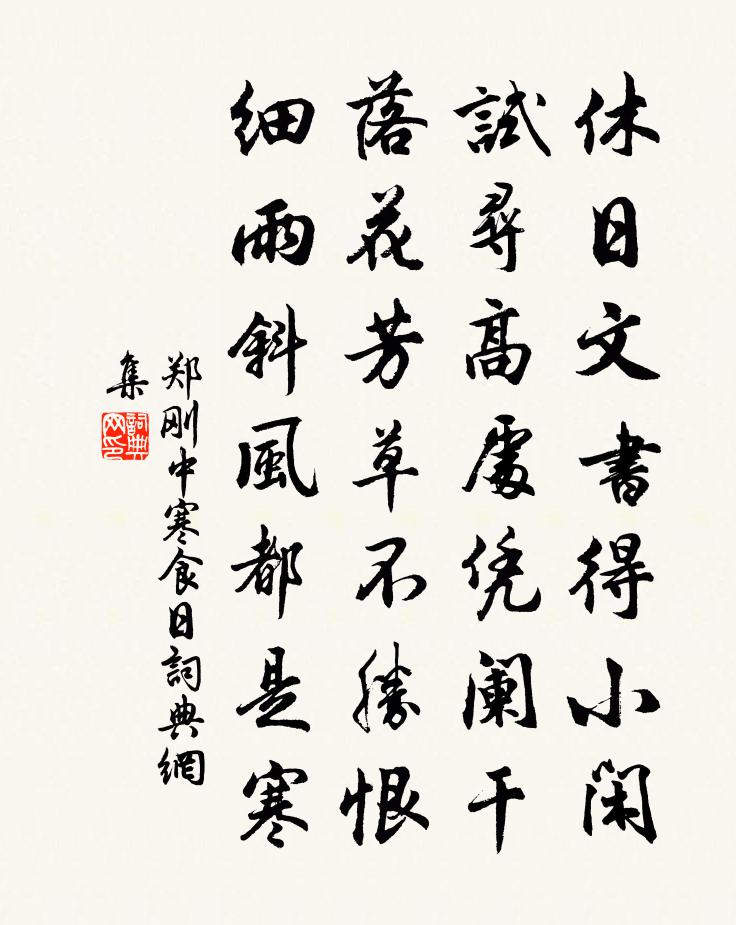 休日文書得小閑
試尋高處凭阑干
落花芳草不勝恨
細雨斜風都是寒
郑刚中寒食日詞典網
集
詞典网印